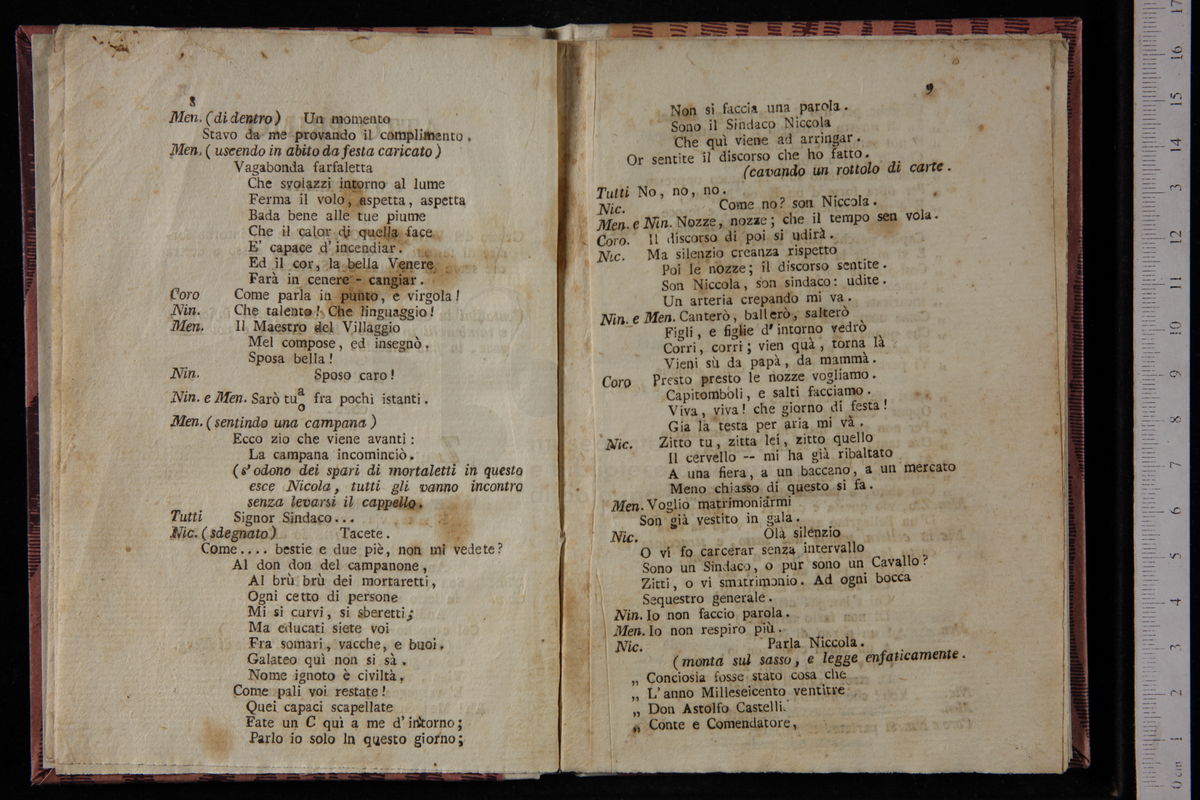 8
Men. (di dentro) Un momento
Stavo da me provando il complimento.
Men. (uscendo in abito da festa caricato)
Vagabonda farfaletta
Che svolazzi intorno al lume
Ferma il volo, aspetta, aspetta
Bada bene alle tue piume
Che il calor di quella face
E' capace d'incendiar.
Ed il cor, la bella Venere
Farà in cenere - cangiar.
Coro Come parla in punto, e virgola!
Nin. Che talento! Che linguaggio!
Men. Il Maestro del Villaggio
Mel compose, ed insegnò.
Sposa bella!
Nin. Sposo caro!
Nin. e Men. Sarò tu a/o fra pochi istanti.
Men. (sentindo una campana)
Ecco zio che viene avanti:
La campana incominciò.
(s'odono dei spari di mortaletti in questo
esce Nicola, tutti gli vanno incontro
senza levarsi il cappello.
Tutti Signor Sindaco...
Nic. (sdegnato) Tacete.
Come.... bestie e due piè, non mi vedete?
Al don don del campanone,
Al brù brù dei mortaretti,
Ogni cetto di persone
Mi si curvi, si sberetti;
Ma educati siete voi
Fra somari, vacche, e buoi.
Galateo quì non si sà.
Nome ignoto è civiltà.
Come pali voi restate!
Quei capaci scapellate
Fate un C quì a me d'intorno;
Parlo io solo In questo giorno;
9
Non si faccia una parola.
Sono il Sindaco Niccola
Che quì viene ad arringar.
Or sentite il discorso che ho fatto.
(cavando un rottolo di carte.
Tutti No, no, no.
Nic. Come no? son Niccola.
Men. e Nin. Nozze, nozze; che il tempo sen vola.
Coro. Il discorso di poi si udirà.
Nic. Ma silenzio creanza rispetto
Poi le nozze; il discorso sentite.
Son Niccola, son sindaco: udite.
Un arteria crepando mi va.
Nin. e Men. Canterò, ballerò, salterò
Figli, e figlie d'intorno vedrò
Corri, corri; vien quà, torna là
Vieni sù da papà, da mammà.
Coro Presto presto le nozze vogliamo.
Capitomboli, e salti facciamo.
Viva, viva! che giorno di festa!
Gia la testa per aria mi và.
Nic. Zitto tu, zitta lei, zitto quello
Il cervello -- mi ha già ribaltato
A una fiera, a un baccano, a un mercato
Meno chiasso di questo si fa.
Men. Voglio matrimoniarmi
Son già vestito in gala.
Nic. Olà silenzio
O vi fo carcerar senza intervallo
Sono un Sindaco, o pur sono un Cavallo?
Zitti, o vi smatrimonio. Ad ogni bocca
Sequestro generale.
Nin. Io non faccio parola.
Men. Io non respiro più.
Nic. Parla Niccola.
(monta sul sasso, e legge enfaticamente.
„ Conciosia fosse stato cosa che
„ L'anno Milleseicento ventitre
„ Don Astolfo Castelli.
„ Conte e Comendatore,
0 cm 1 2 3 4 5 6 7 8 9 10 11 12 13 14 15 16 17